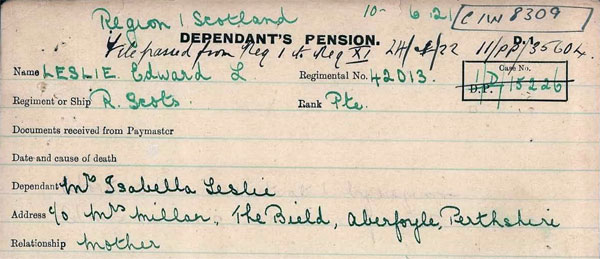 Region 1 Scotland 10- 6.21 C/W 8309
DEPENDANT'S PENSION.
File passed from Reg 1 to Reg XI 24/ /22 11/PP/35604.
Name LESLIE Edward L Regimental No. 42013. Case No.
Regiment or Ship R. Scots Rank Pte. 1/D/15226
D.P.
Documents received from Paymaster
Date and cause of death
Dependant Mrs Isabella Leslie
Address c/o Mrs Millar, The Bield, Aberfoyle, Perthshire
Relationship Mother